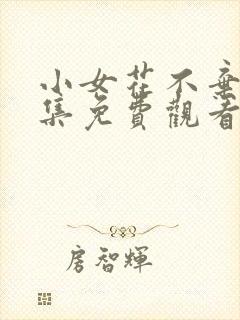 小女花不棄
集免費觀看
房智輝